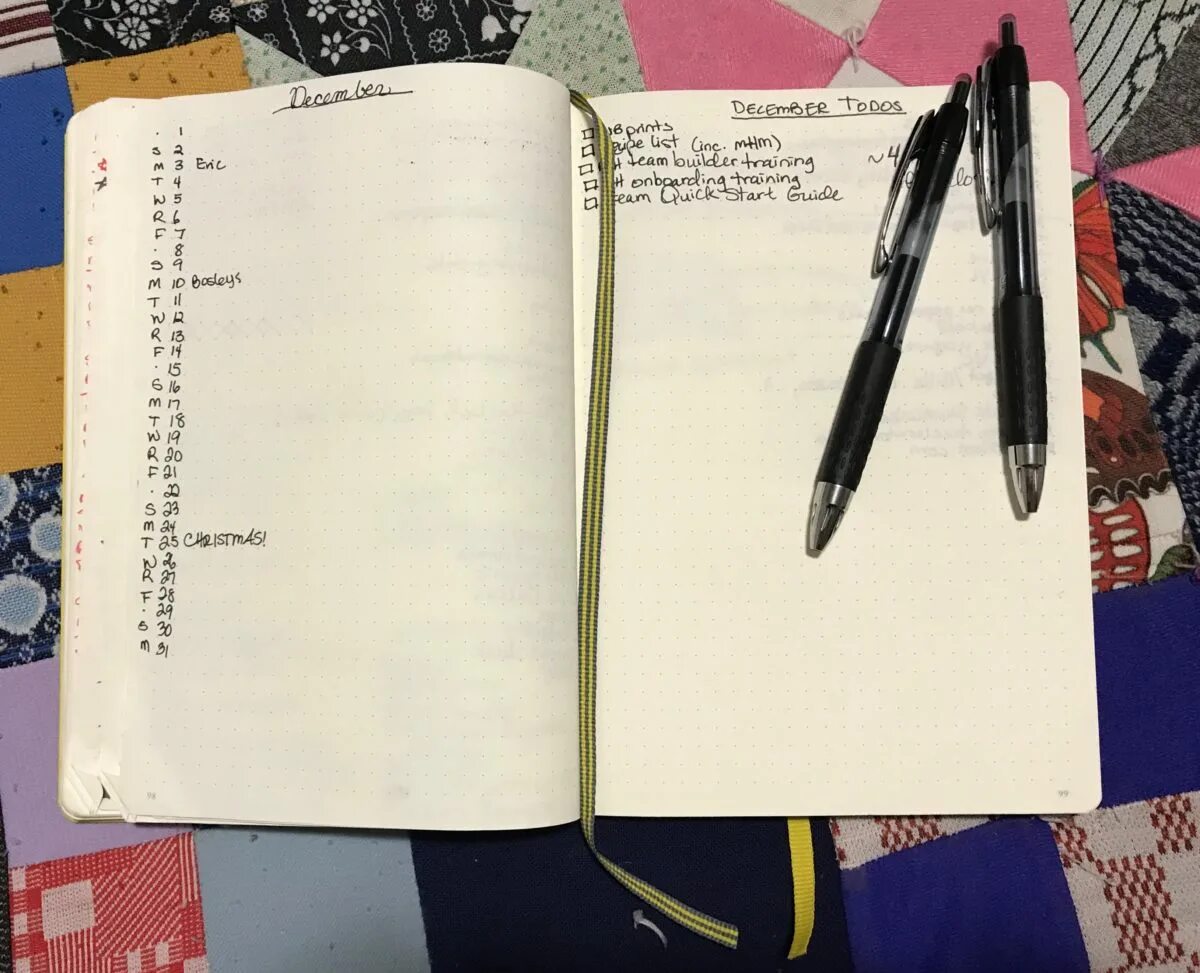 December
. 1
S 2
M 3 Eric
T 4
W 5
R 6
F 7
. 8
S 9
M 10 Bosleys
T 11
W 12
R 13
F 14
. 15
S 16
M 17
T 18
W 19
R 20
F 21
. 22
S 23
M 24
T 25 CHRISTMAS!
W 26
R 27
F 28
. 29
S 30
M 31
98
DECEMBER TODOS
prints
list (inc. mHm)
team builder training ~4
onboarding training
Quick Start Guide
99